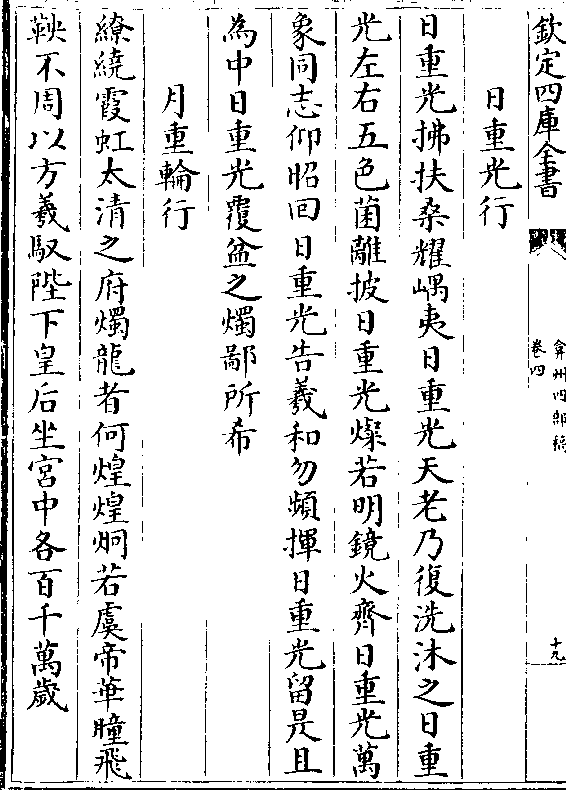 欽定四庫全書
弇州四部稿
卷四
十九
日重光行
日重光拂扶桑耀嵎夷日重光天老乃復洗沐之日重
光左右五色菌離披日重光燦若明鏡火齊日重光萬
象同志仰昭回日重光告羲和勿頻揮日重光留是且
為中日重光覆盆之燭鄙所希
月重輪行
繚繞霞虹太清之府燭龍者何煌煌炯若虞帝華瞳飛
鞅不周以方羲馭陛下皇后坐宮中各百千萬歲